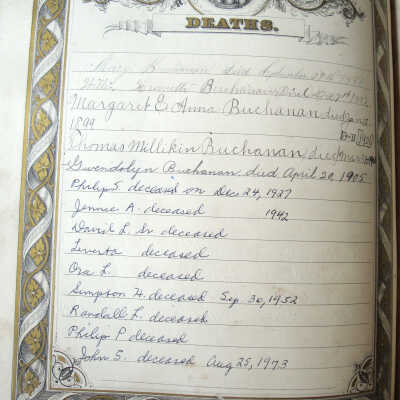 DEATHS.
Mary Buchanan Died September
Buchanan Died
Margaret E. Anna Buchanan, died Jan 2
1899
Thomas Millikin Buchanan, died Mar
Gwendolyn Buchanan died April 20, 1905
Philip S. deceased on Dec 24, 1927
Jennie A. deceased 1942
David L. Sr deceased
Leverta deceased
Ora L. deceased
Simpson H. deceased Sep 30, 1952
Randall L. deceased
Philip P deceased
John S. deceased Aug 25, 1973